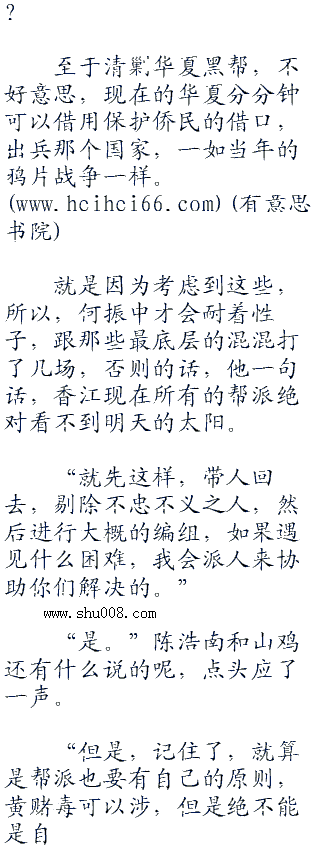 ?
至于清剿华夏黑帮，不
好意思，现在的华夏分分钟
可以借用保护侨民的借口，
出兵那个国家，一如当年的
鸦片战争一样。
(www.hcihci66.com)(有意思
书院)
就是因为考虑到这些，
所以，何振中才会耐着性
子，跟那些最底层的混混打
了几场，否则的话，他一句
话，香江现在所有的帮派绝
对看不到明天的太阳。
“就先这样，带人回
去，剔除不忠不义之人，然
后进行大概的编组，如果遇
见什么困难，我会派人来协
助你们解决的。”
www.shu008.com
“是。”陈浩南和山鸡
还有什么说的呢，点头应了
一声。
“但是，记住了，就算
是帮派也要有自己的原则，
黄赌毒可以涉，但是绝不能
是自